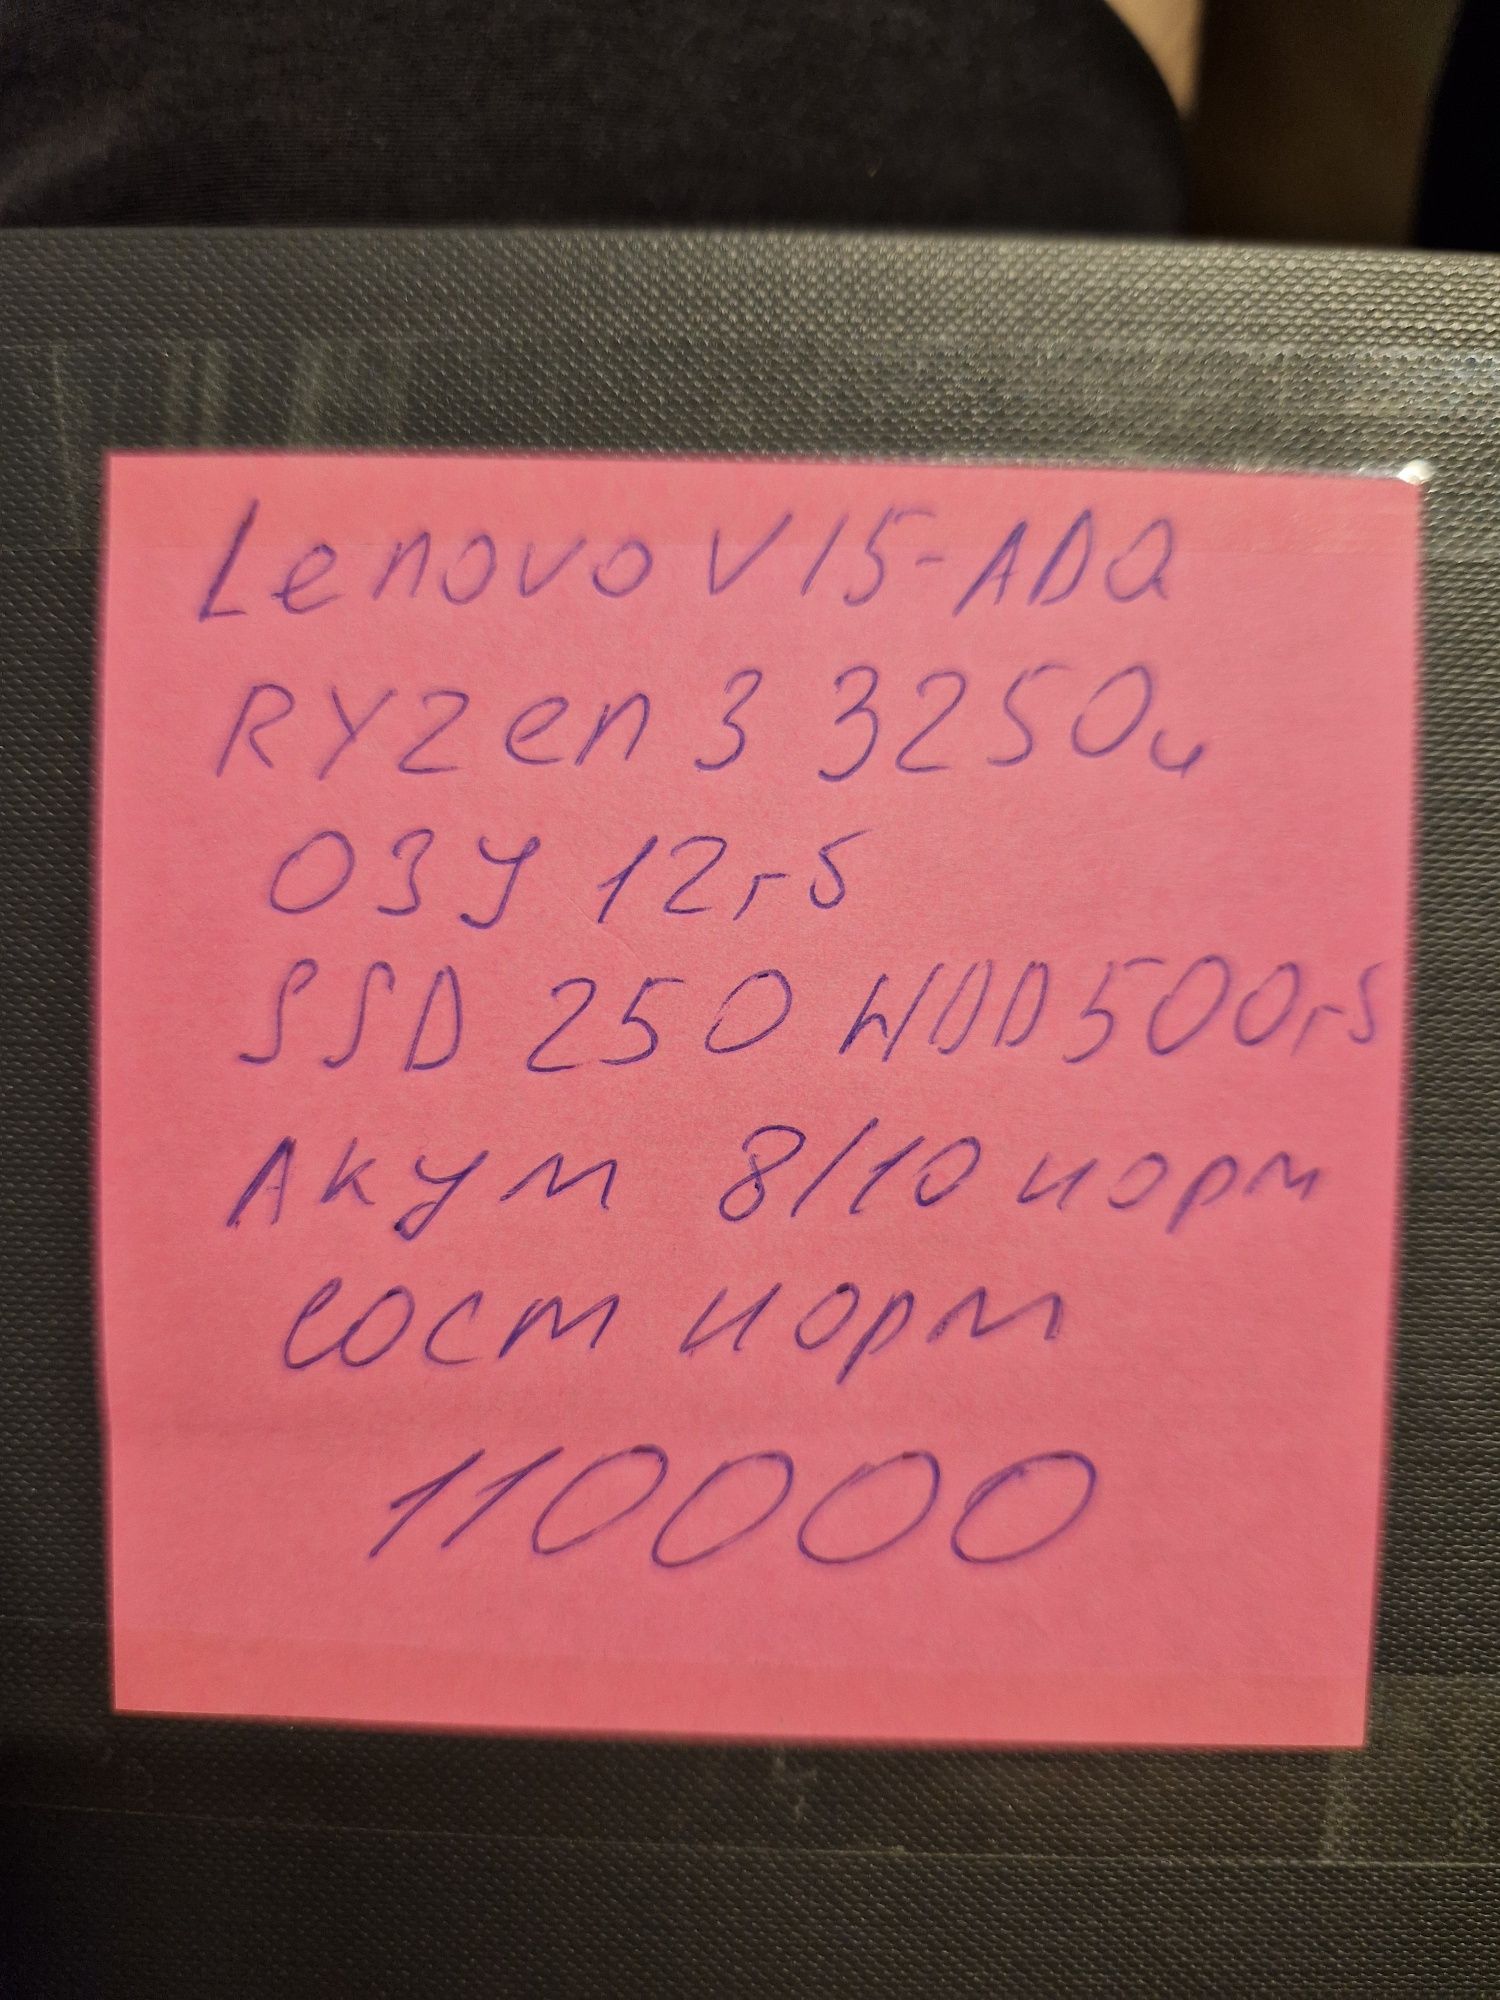 Lenovo V15-ADA
RYZen 3 3250u
ОЗУ 12гб
SSD 250 HDD500гб
Акум 8/10 норм
сост норм
110000